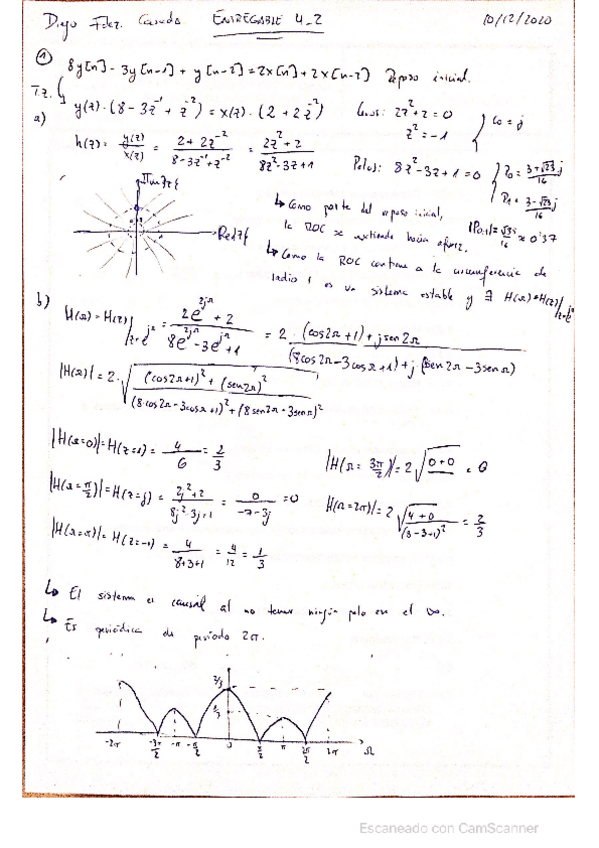 Diego Fdez. ENTREGABLE 4_2 10/12/2020
① 8y[n]-3y[n-1]+y[n-2]=2x[n]+2x[n-2] Reposo inicial.
T.z. y(z)·(8-3z⁻¹+z⁻²)=x(z)·(2+2z⁻²) Ceros: 2z²+2=0
z²=-1 } c₀=j
a) h(z)= y(z)/x(z) = (2+2z⁻²)/(8-3z⁻¹+z⁻²) = (2z²+2)/(8z²-3z+1) Polos: 8z²-3z+1=0 } p₀=(3+√23j)/16
p₁=(3-√23j)/16
Im{z}
Re{z}
↳ Como parte del reposo inicial,
la ROC se extiende hacia afuera.
↳ Como la ROC contiene a la circunferencia de
radio 1 es un sistema estable y ∃ H(Ω)=H(z)|
b) H(Ω)=H(z)| = (2e^{2jΩ}+2)/(8e^{2jΩ}-3e^{jΩ}+1) = 2·((cos2Ω+1)+jsen2Ω)/((8cos2Ω-3cosΩ+1)+j(8sen2Ω-3senΩ))
|H(Ω)|=2·√(((cos2Ω+1)²+(sen2Ω)²)/((8·cos2Ω-3cosΩ+1)²+(8sen2Ω-3senΩ)²))
|H(Ω=0)|=H(z=1)= 4/6 = 2/3
|H(Ω=3π/2)|=2√(0+0) = 0
|H(Ω=π/2)|=H(z=j)= (2j²+2)/(8j²-3j+1) = 0/(-7-3j) =0
H(Ω=2π)|=2√((4+0)/(8-3+1)²) = 2/3
|H(Ω=π)|=H(z=-1)= 4/(8+3+1) = 4/12 = 1/3
↳ El sistema es causal al no tener ningún polo en el ∞.
↳ Es periódica de periodo 2π.
2/3
1/3
-2π -3π/2 -π -π/2 0 π/2 π 2π Ω
Escaneado con CamScanner